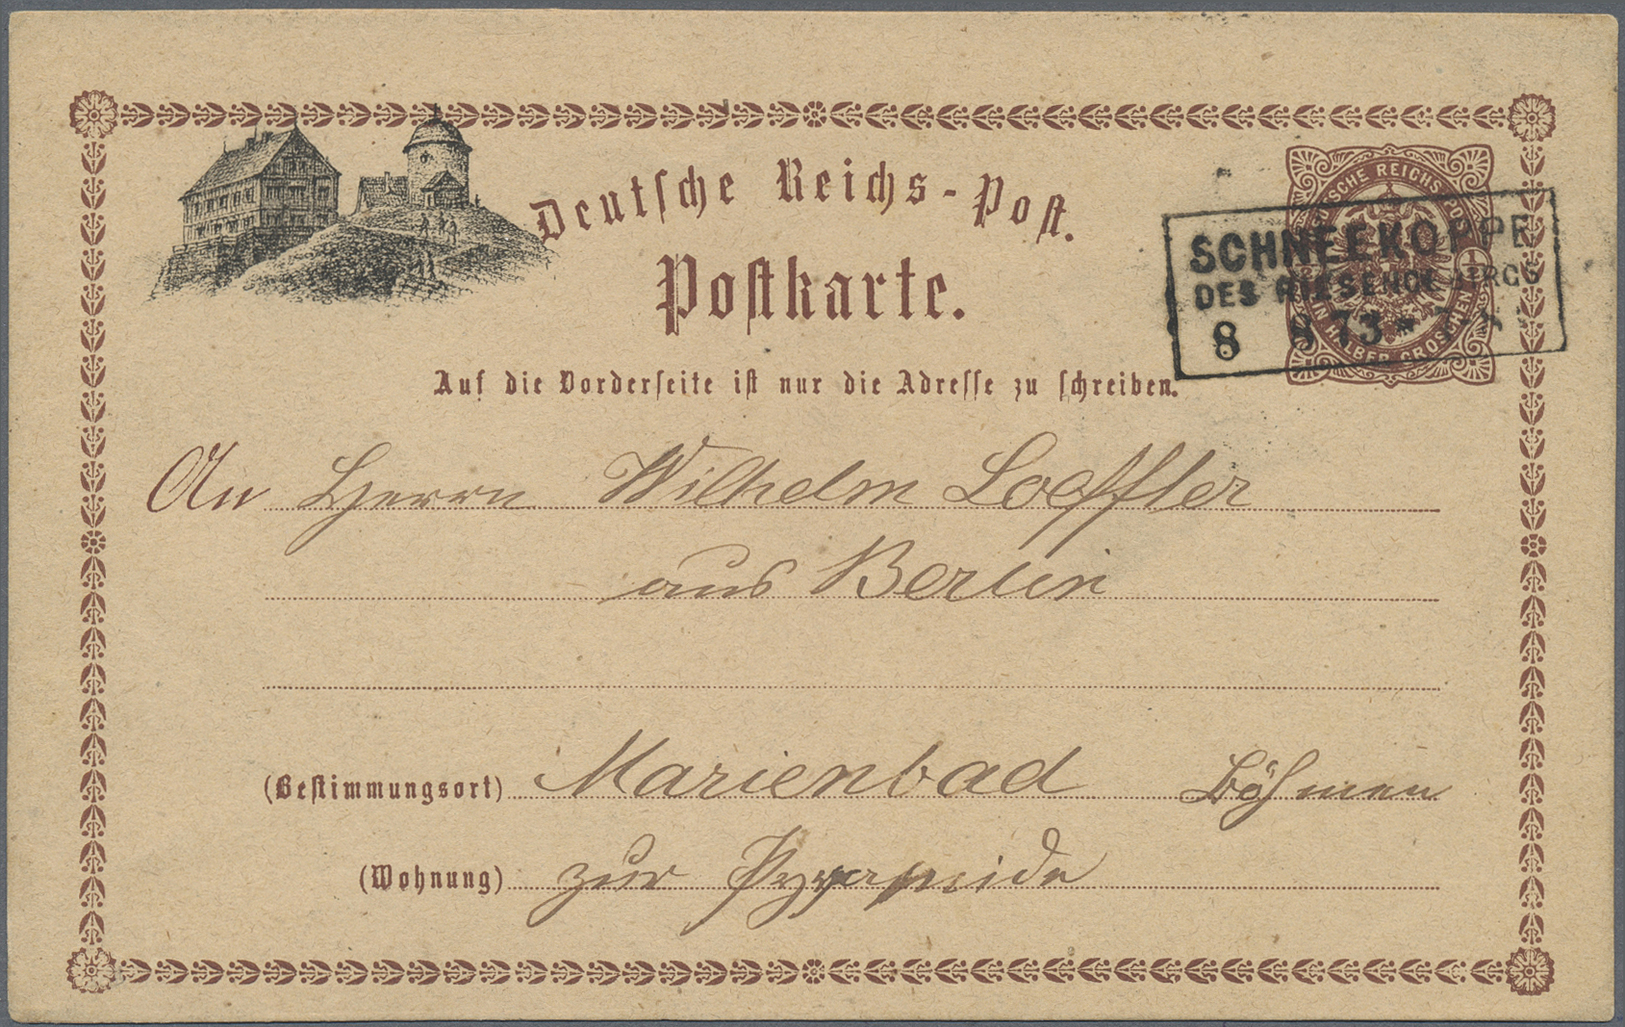 Deutsche Reichs-Post.
Postkarte.
Auf die Vorderseite ist nur die Adresse zu schreiben.
DEUTSCHE REICHS-POST
1/2
EIN HALBER GROSCHEN
SCHNEEKOPPE
DES RIESENGEBIRGS
8 8 73 *
An Herrn Wilhelm Loeffler
aus Berlin
(Bestimmungsort) Marienbad Böhmen
(Wohnung) zur Pyramide